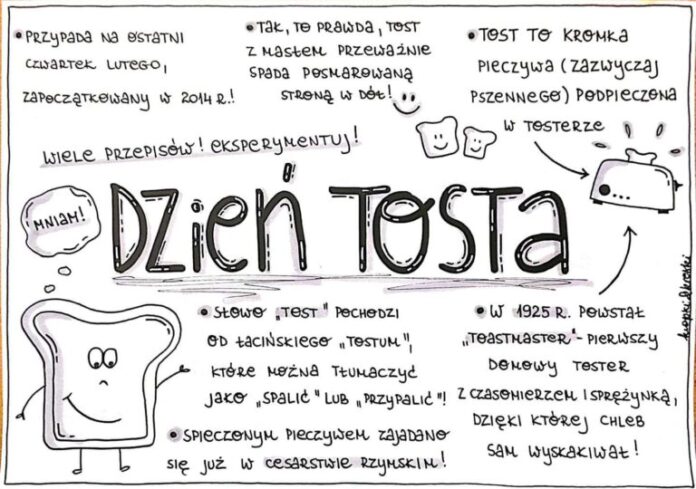 • PRZYPADA NA OSTATNI
CZWARTEK LUTEGO,
ZAPOCZĄTKOWANY W 2014 R.!
• TAK, TO PRAWDA, TOST
Z MASŁEM PRZEWAŻNIE
SPADA POSMAROWANĄ
STRONĄ W DÓŁ!
• TOST TO KROMKA
PIECZYWA (ZAZWYCZAJ
PSZENNEGO) PODPIECZONA
W TOSTERZE
WIELE PRZEPISÓW! EKSPERYMENTUJ!
MNIAM!
DZIEŃ TOSTA
• SŁOWO „TOST" POCHODZI
OD ŁACIŃSKIEGO „TOSTUM",
KTÓRE MOŻNA TŁUMACZYĆ
JAKO „SPALIĆ" LUB „PRZYPALIĆ"!
• SPIECZONYM PIECZYWEM ZAJADANO
SIĘ JUŻ W CESARSTWIE RZYMSKIM!
• W 1925 R. POWSTAŁ
„TOASTMASTER" - PIERWSZY
DOMOWY TOSTER
Z CZASOMIERZEM I SPRĘŻYNKĄ,
DZIĘKI KTÓREJ CHLEB
SAM WYSKAKIWAŁ!